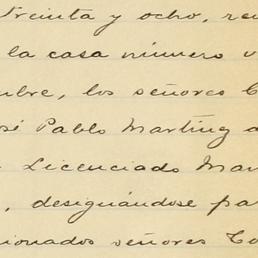 treinta y ocho, re
la casa número
bre, los señores
sé Pablo Martínz
Licenciado Man
, designándose pa
sionados señores Co